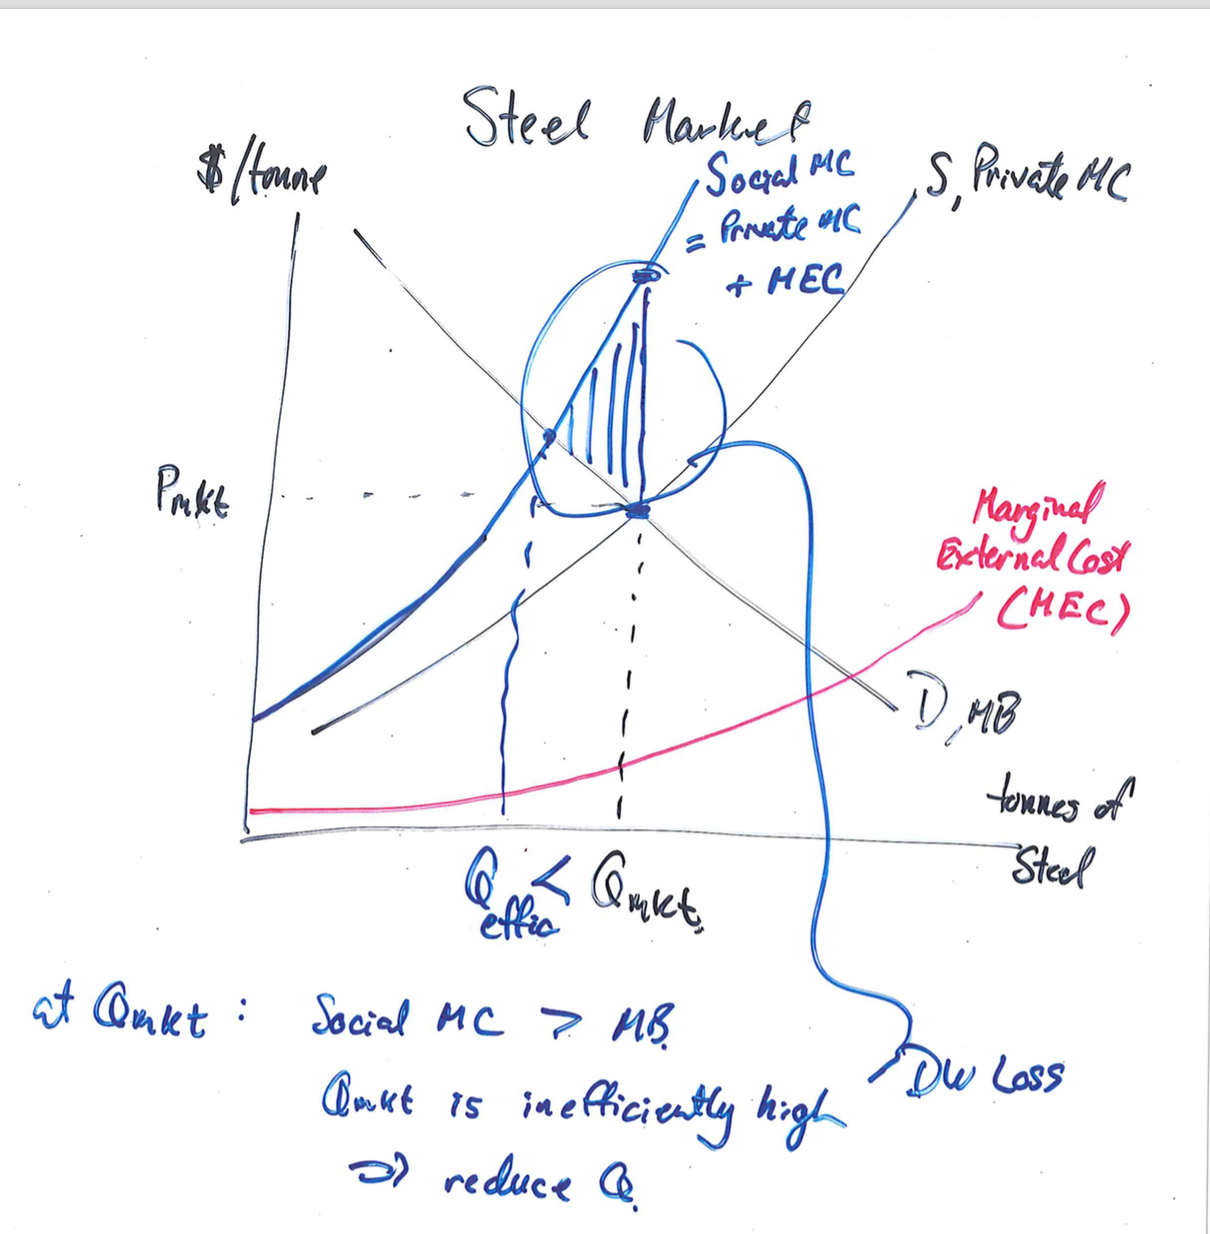 Steel Market
$/tonne
Social MC
= Private MC
+ MEC
S, Private MC
Pmkt
Marginal
External Cost
(MEC)
D, MB
tonnes of
Steel
Qeffic < Qmkt.
at Qmkt : Social MC > MB.
Qmkt is inefficiently high
⇒ reduce Q.
DW Loss